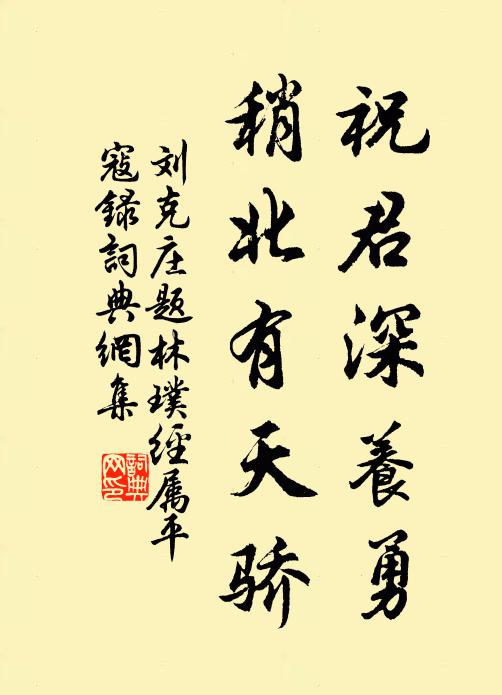 祝君深養勇
稍北有天骄
刘克庄题林璞經属平
寇録詞典網集
詞典
网印